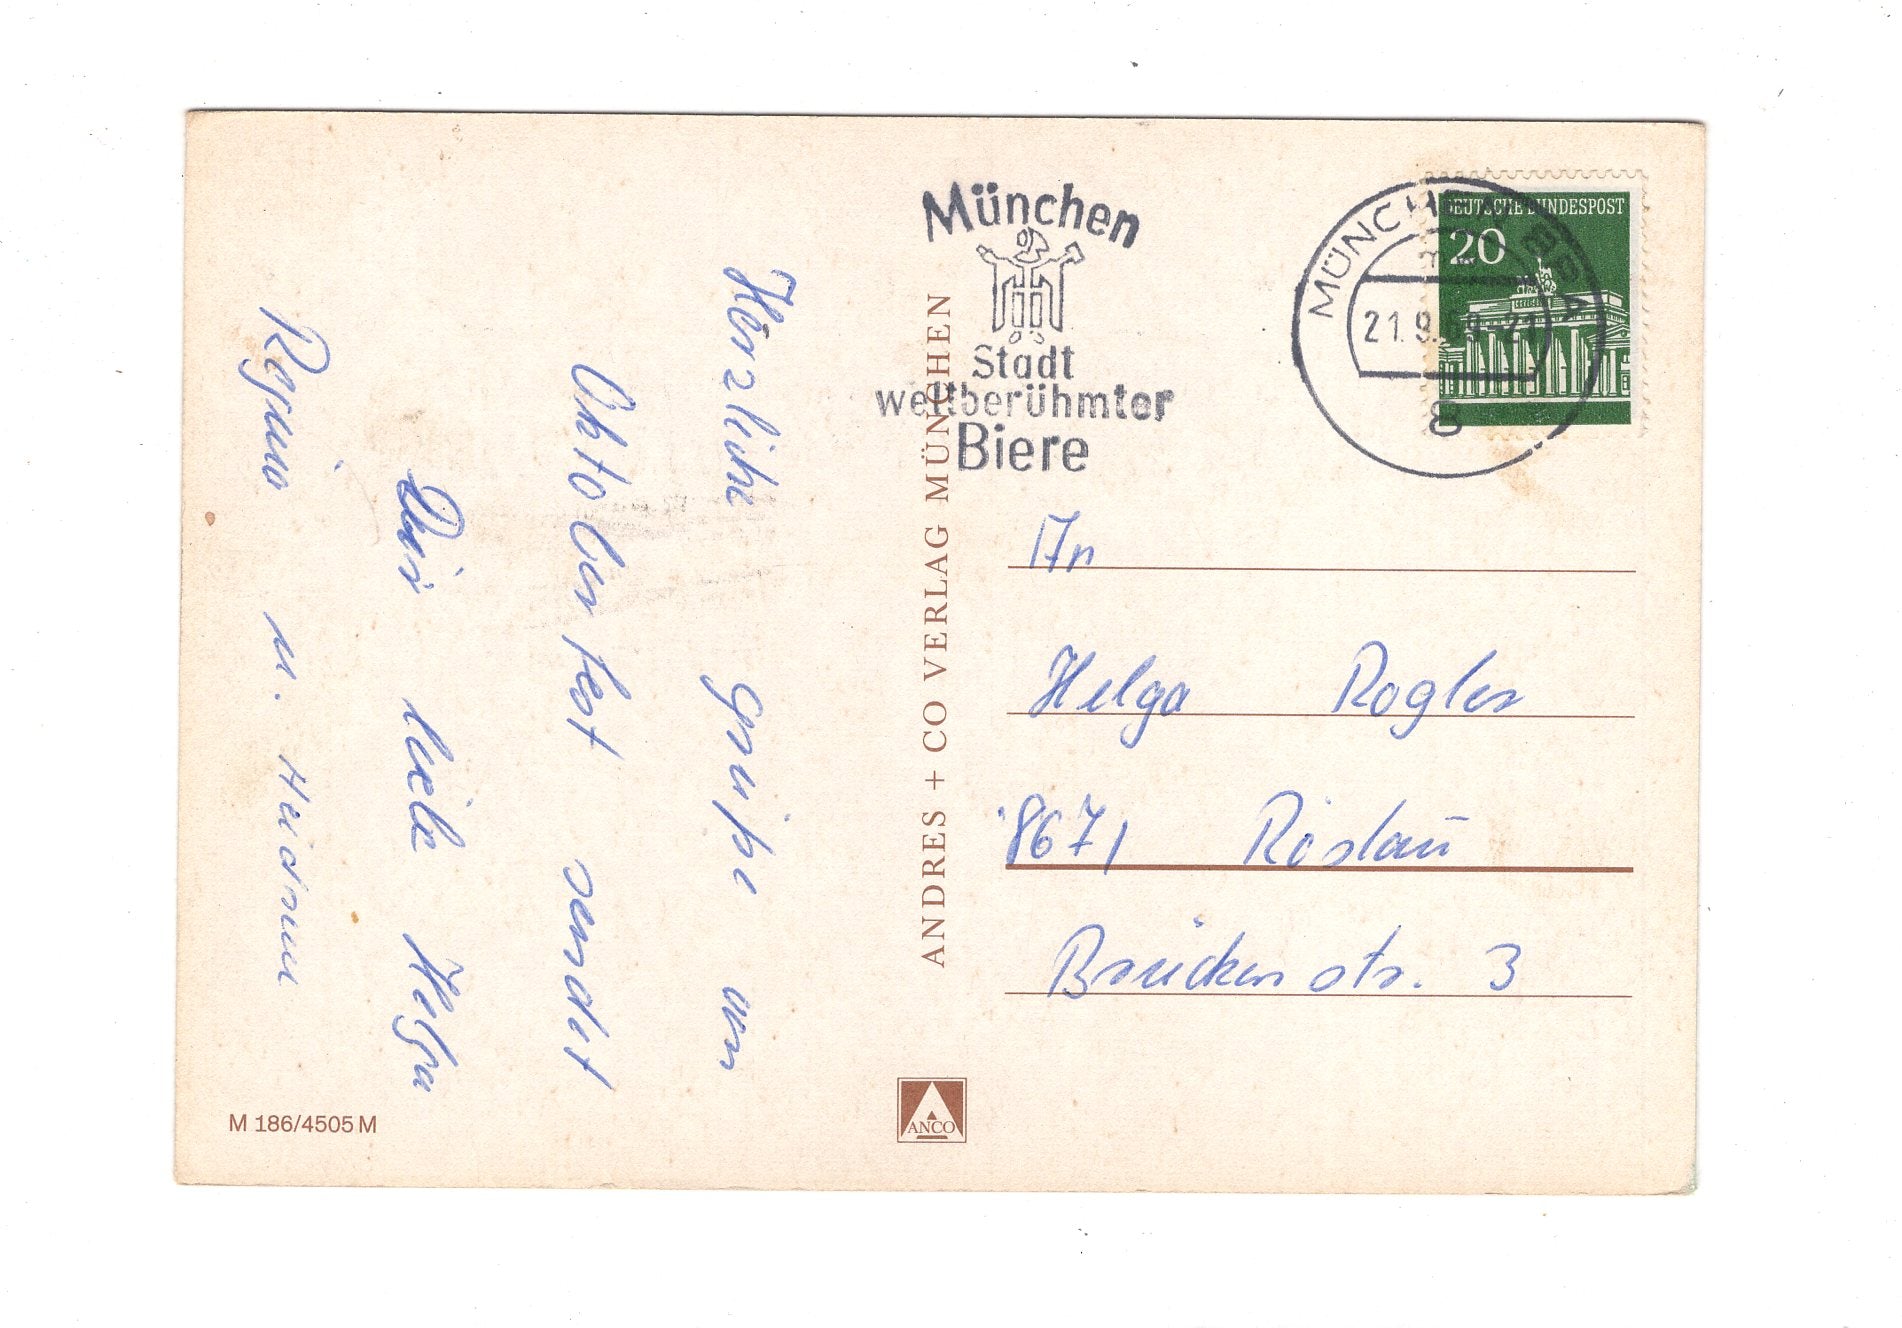 Herzliche Grüße vom
Oktoberfest sendet
Dir liebe Helga
Regina u. Heidrun
M 186/4505 M
ANDRES + CO VERLAG MÜNCHEN
ANCO
München
Stadt
weltberühmter
Biere
MÜNCHEN BPA
21.9. -21
8
DEUTSCHE BUNDESPOST
20
An
Helga Rogler
8671 Röslau
Brückenstr. 3